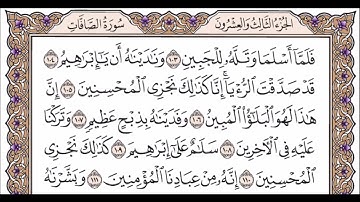 الجزء الثالث والعشرون سورة الصافات
فَلَمَّا أَسْلَمَا وَتَلَّهُۥ لِلْجَبِينِ ١٠٣ وَنَٰدَيْنَٰهُ أَن يَٰٓإِبْرَٰهِيمُ ١٠٤
قَدْ صَدَّقْتَ ٱلرُّءْيَآ إِنَّا كَذَٰلِكَ نَجْزِى ٱلْمُحْسِنِينَ ١٠٥ إِنَّ
هَٰذَا لَهُوَ ٱلْبَلَٰٓؤُا۟ ٱلْمُبِينُ ١٠٦ وَفَدَيْنَٰهُ بِذِبْحٍ عَظِيمٍ ١٠٧ وَتَرَكْنَا
عَلَيْهِ فِى ٱلْءَاخِرِينَ ١٠٨ سَلَٰمٌ عَلَىٰٓ إِبْرَٰهِيمَ ١٠٩ كَذَٰلِكَ نَجْزِى
ٱلْمُحْسِنِينَ ١١٠ إِنَّهُۥ مِنْ عِبَادِنَا ٱلْمُؤْمِنِينَ ١١١ وَبَشَّرْنَٰهُ